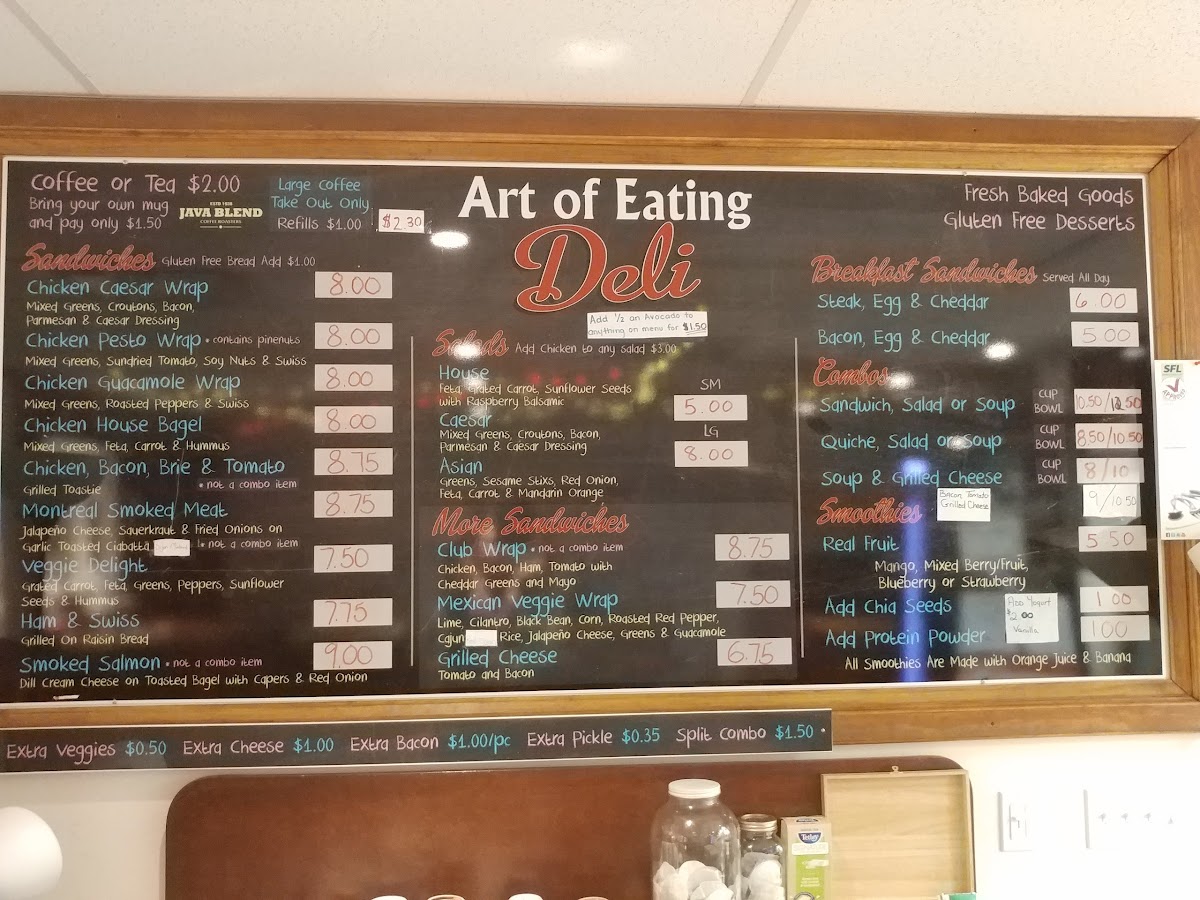 Coffee or Tea $2.00
Bring your own mug
and pay only $1.50
JAVA BLEND
COFFEE ROASTERS
Large Coffee
Take Out Only
Refills $1.00
$2.30
Art of Eating
Deli
Fresh Baked Goods
Gluten Free Desserts
Sandwiches Gluten Free Bread Add $1.00
Chicken Caesar Wrap 8.00
Mixed Greens, Croutons, Bacon,
Parmesan & Caesar Dressing
Chicken Pesto Wrap • contains pinenuts 8.00
Mixed Greens, Sundried Tomato, Soy Nuts & Swiss
Chicken Guacamole Wrap 8.00
Mixed Greens, Roasted Peppers & Swiss
Chicken House Bagel 8.00
Mixed Greens, Feta, Carrot & Hummus
Chicken, Bacon, Brie & Tomato 8.75
Grilled Toastie • not a combo item
Montreal Smoked Meat 8.75
Jalapeño Cheese, Sauerkraut & Fried Onions on
Garlic Toasted Ciabatta • not a combo item
Veggie Delight 7.50
Grated Carrot, Feta, Greens, Peppers, Sunflower
Seeds & Hummus
Ham & Swiss 7.75
Grilled On Raisin Bread
Smoked Salmon • not a combo item 9.00
Dill Cream Cheese on Toasted Bagel with Capers & Red Onion
Add 1/2 an Avocado to
anything on menu for $1.50
Salads Add Chicken to any salad $3.00
House
Feta, Grated Carrot, Sunflower Seeds
with Raspberry Balsamic
SM
5.00
Caesar
Mixed Greens, Croutons, Bacon,
Parmesan & Caesar Dressing
LG
8.00
Asian
Greens, Sesame Stixs, Red Onion,
Feta, Carrot & Mandarin Orange
More Sandwiches
Club Wrap • not a combo item 8.75
Chicken, Bacon, Ham, Tomato with
Cheddar Greens and Mayo
Mexican Veggie Wrap 7.50
Lime, Cilantro, Black Bean, Corn, Roasted Red Pepper,
Cajun Rice, Jalapeño Cheese, Greens & Guacamole
Grilled Cheese 6.75
Tomato and Bacon
Breakfast Sandwiches Served All Day
Steak, Egg & Cheddar 6.00
Bacon, Egg & Cheddar 5.00
Combos
Sandwich, Salad or Soup CUP BOWL 10.50/12.50
Quiche, Salad or Soup CUP BOWL 8.50/10.50
Soup & Grilled Cheese CUP BOWL 8/10
Bacon, Tomato
Grilled Cheese
9/10.50
Smoothies
Real Fruit 5.50
Mango, Mixed Berry/Fruit,
Blueberry or Strawberry
Add Chia Seeds 1.00
Add Yogurt
$2.00
Vanilla
Add Protein Powder 1.00
All Smoothies Are Made with Orange Juice & Banana
Extra Veggies $0.50 Extra Cheese $1.00 Extra Bacon $1.00/pc Extra Pickle $0.35 Split Combo $1.50
SFL
Tetley